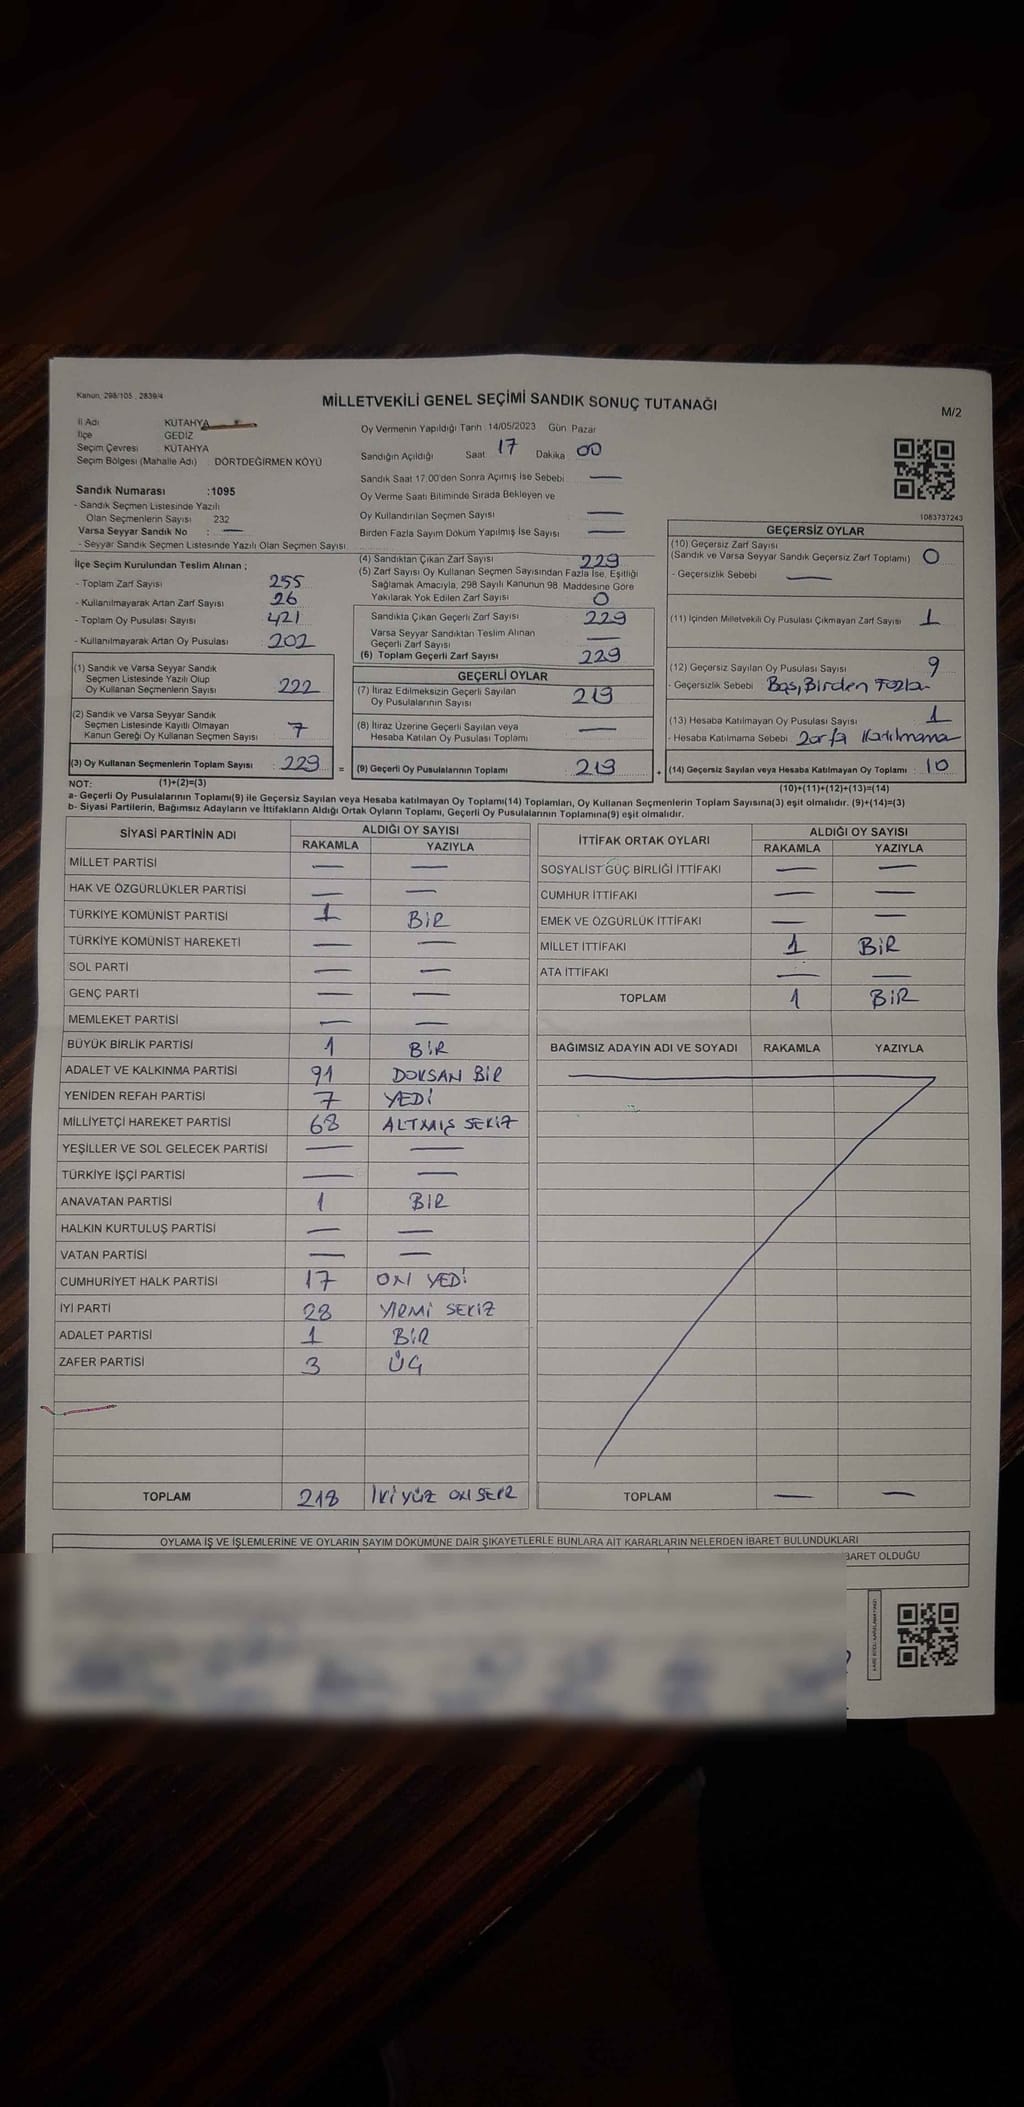 Kanun, 298/105 , 2839/4
MİLLETVEKİLİ GENEL SEÇİMİ SANDIK SONUÇ TUTANAĞI
M/2
İl Adı KÜTAHYA
İlçe GEDİZ
Seçim Çevresi KÜTAHYA
Seçim Bölgesi (Mahalle Adı) : DÖRTDEĞİRMEN KÖYÜ
Sandık Numarası :1095
- Sandık Seçmen Listesinde Yazılı
Olan Seçmenlerin Sayısı 232
Varsa Seyyar Sandık No : —
- Seyyar Sandık Seçmen Listesinde Yazılı Olan Seçmen Sayısı
İlçe Seçim Kurulundan Teslim Alınan ;
- Toplam Zarf Sayısı 255
- Kullanılmayarak Artan Zarf Sayısı 26
- Toplam Oy Pusulası Sayısı 421
- Kullanılmayarak Artan Oy Pusulası 202
(1) Sandık ve Varsa Seyyar Sandık
Seçmen Listesinde Yazılı Olup
Oy Kullanan Seçmenlerin Sayısı 222
(2) Sandık ve Varsa Seyyar Sandık
Seçmen Listesinde Kayıtlı Olmayan
Kanun Gereği Oy Kullanan Seçmen Sayısı 7
(3) Oy Kullanan Seçmenlerin Toplam Sayısı 229 =
Oy Vermenin Yapıldığı Tarih : 14/05/2023 Gün Pazar
Sandığın Açıldığı Saat 17 Dakika 00
Sandık Saat 17.00'den Sonra Açımış İse Sebebi —
Oy Verme Saati Bitiminde Sırada Bekleyen ve
Oy Kullandırılan Seçmen Sayısı —
Birden Fazla Sayım Döküm Yapılmış İse Sayısı —
(4) Sandıktan Çıkan Zarf Sayısı 229
(5) Zarf Sayısı Oy Kullanan Seçmen Sayısından Fazla İse, Eşitliği
Sağlamak Amacıyla, 298 Sayılı Kanunun 98. Maddesine Göre
Yakılarak Yok Edilen Zarf Sayısı 0
Sandıkta Çıkan Geçerli Zarf Sayısı 229
Varsa Seyyar Sandıktan Teslim Alınan
Geçerli Zarf Sayısı —
(6) Toplam Geçerli Zarf Sayısı 229
GEÇERLİ OYLAR
(7) İtiraz Edilmeksizin Geçerli Sayılan
Oy Pusulalarının Sayısı 219
(8) İtiraz Üzerine Geçerli Sayılan veya
Hesaba Katılan Oy Pusulası Toplamı —
(9) Geçerli Oy Pusulalarının Toplamı 219 +
1083737243
GEÇERSİZ OYLAR
(10) Geçersiz Zarf Sayısı
(Sandık ve Varsa Seyyar Sandık Geçersiz Zarf Toplamı) 0
- Geçersizlik Sebebi —
(11) İçinden Milletvekili Oy Pusulası Çıkmayan Zarf Sayısı 1
(12) Geçersiz Sayılan Oy Pusulası Sayısı 9
- Geçersizlik Sebebi Boş, Birden Fazla
(13) Hesaba Katılmayan Oy Pusulası Sayısı 1
- Hesaba Katılmama Sebebi Zarfa Katılmama
(14) Geçersiz Sayılan veya Hesaba Katılmayan Oy Toplamı 10
NOT: (1)+(2)=(3)
(10)+(11)+(12)+(13)=(14)
a- Geçerli Oy Pusulalarının Toplamı(9) ile Geçersiz Sayılan veya Hesaba katılmayan Oy Toplamı(14) Toplamları, Oy Kullanan Seçmenlerin Toplam Sayısına(3) eşit olmalıdır. (9)+(14)=(3)
b- Siyasi Partilerin, Bağımsız Adayların ve İttifakların Aldığı Ortak Oyların Toplamı, Geçerli Oy Pusulalarının Toplamına(9) eşit olmalıdır.
SİYASİ PARTİNİN ADI ALDIĞI OY SAYISI
RAKAMLA YAZIYLA
MİLLET PARTİSİ — —
HAK VE ÖZGÜRLÜKLER PARTİSİ — —
TÜRKİYE KOMÜNİST PARTİSİ 1 BİR
TÜRKİYE KOMÜNİST HAREKETİ — —
SOL PARTİ — —
GENÇ PARTİ — —
MEMLEKET PARTİSİ — —
BÜYÜK BİRLİK PARTİSİ 1 BİR
ADALET VE KALKINMA PARTİSİ 91 DOKSAN BİR
YENİDEN REFAH PARTİSİ 7 YEDİ
MİLLİYETÇİ HAREKET PARTİSİ 68 ALTMIŞ SEKİZ
YEŞİLLER VE SOL GELECEK PARTİSİ — —
TÜRKİYE İŞÇİ PARTİSİ — —
ANAVATAN PARTİSİ 1 BİR
HALKIN KURTULUŞ PARTİSİ — —
VATAN PARTİSİ — —
CUMHURİYET HALK PARTİSİ 17 ON YEDİ
İYİ PARTİ 28 YİRMİ SEKİZ
ADALET PARTİSİ 1 BİR
ZAFER PARTİSİ 3 ÜÇ
TOPLAM 218 İKİ YÜZ ON SEKİZ
İTTİFAK ORTAK OYLARI ALDIĞI OY SAYISI
RAKAMLA YAZIYLA
SOSYALİST GÜÇ BİRLİĞİ İTTİFAKI — —
CUMHUR İTTİFAKI — —
EMEK VE ÖZGÜRLÜK İTTİFAKI — —
MİLLET İTTİFAKI 1 BİR
ATA İTTİFAKI — —
TOPLAM 1 BİR
BAĞIMSIZ ADAYIN ADI VE SOYADI RAKAMLA YAZIYLA
TOPLAM — —
OYLAMA İŞ VE İŞLEMLERİNE VE OYLARIN SAYIM DÖKÜMÜNE DAİR ŞİKAYETLERLE BUNLARA AİT KARARLARIN NELERDEN İBARET BULUNDUKLARI
BARET OLDUĞU